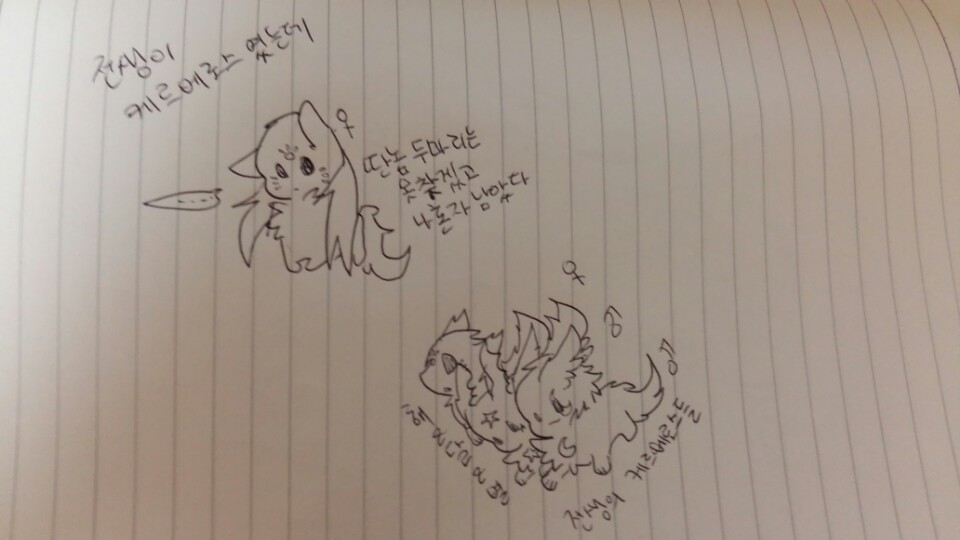 전생이
케르베로스 였는데
♀
딴놈 두마리는
못찾겠고
나혼자 남았다
♀
♂
♂
전생의 케르베로스들